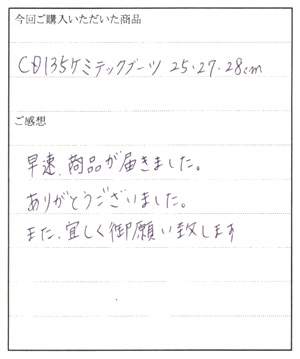 今回ご購入いただいた商品
CD135ケミテックブーツ 25・27・28cm
ご感想
早速、商品が届きました。
ありがとうございました。
また、宜しく御願い致します